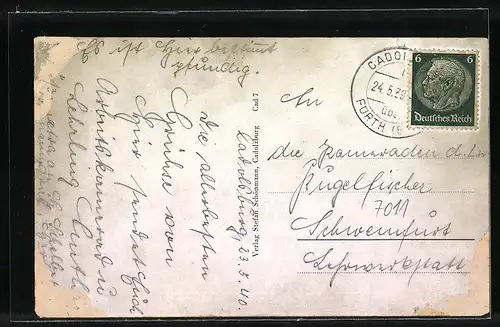 Es ist hier bestimmt
pfundig.
Cadolzburg, 23.5.40.
Die allerbesten
Grüße von
hier sendet Euch
Arbeitskamerad u.
Lehrling
Verlag Stefan Schönmann, Cadolzburg Cad 7
CADOL
24.5.39
FÜRTH (B
6 6
Deutsches Reich
An
die Kameraden d. L.
Kugelfischer
7011
Schweinfurt
Lehrwerkstatt